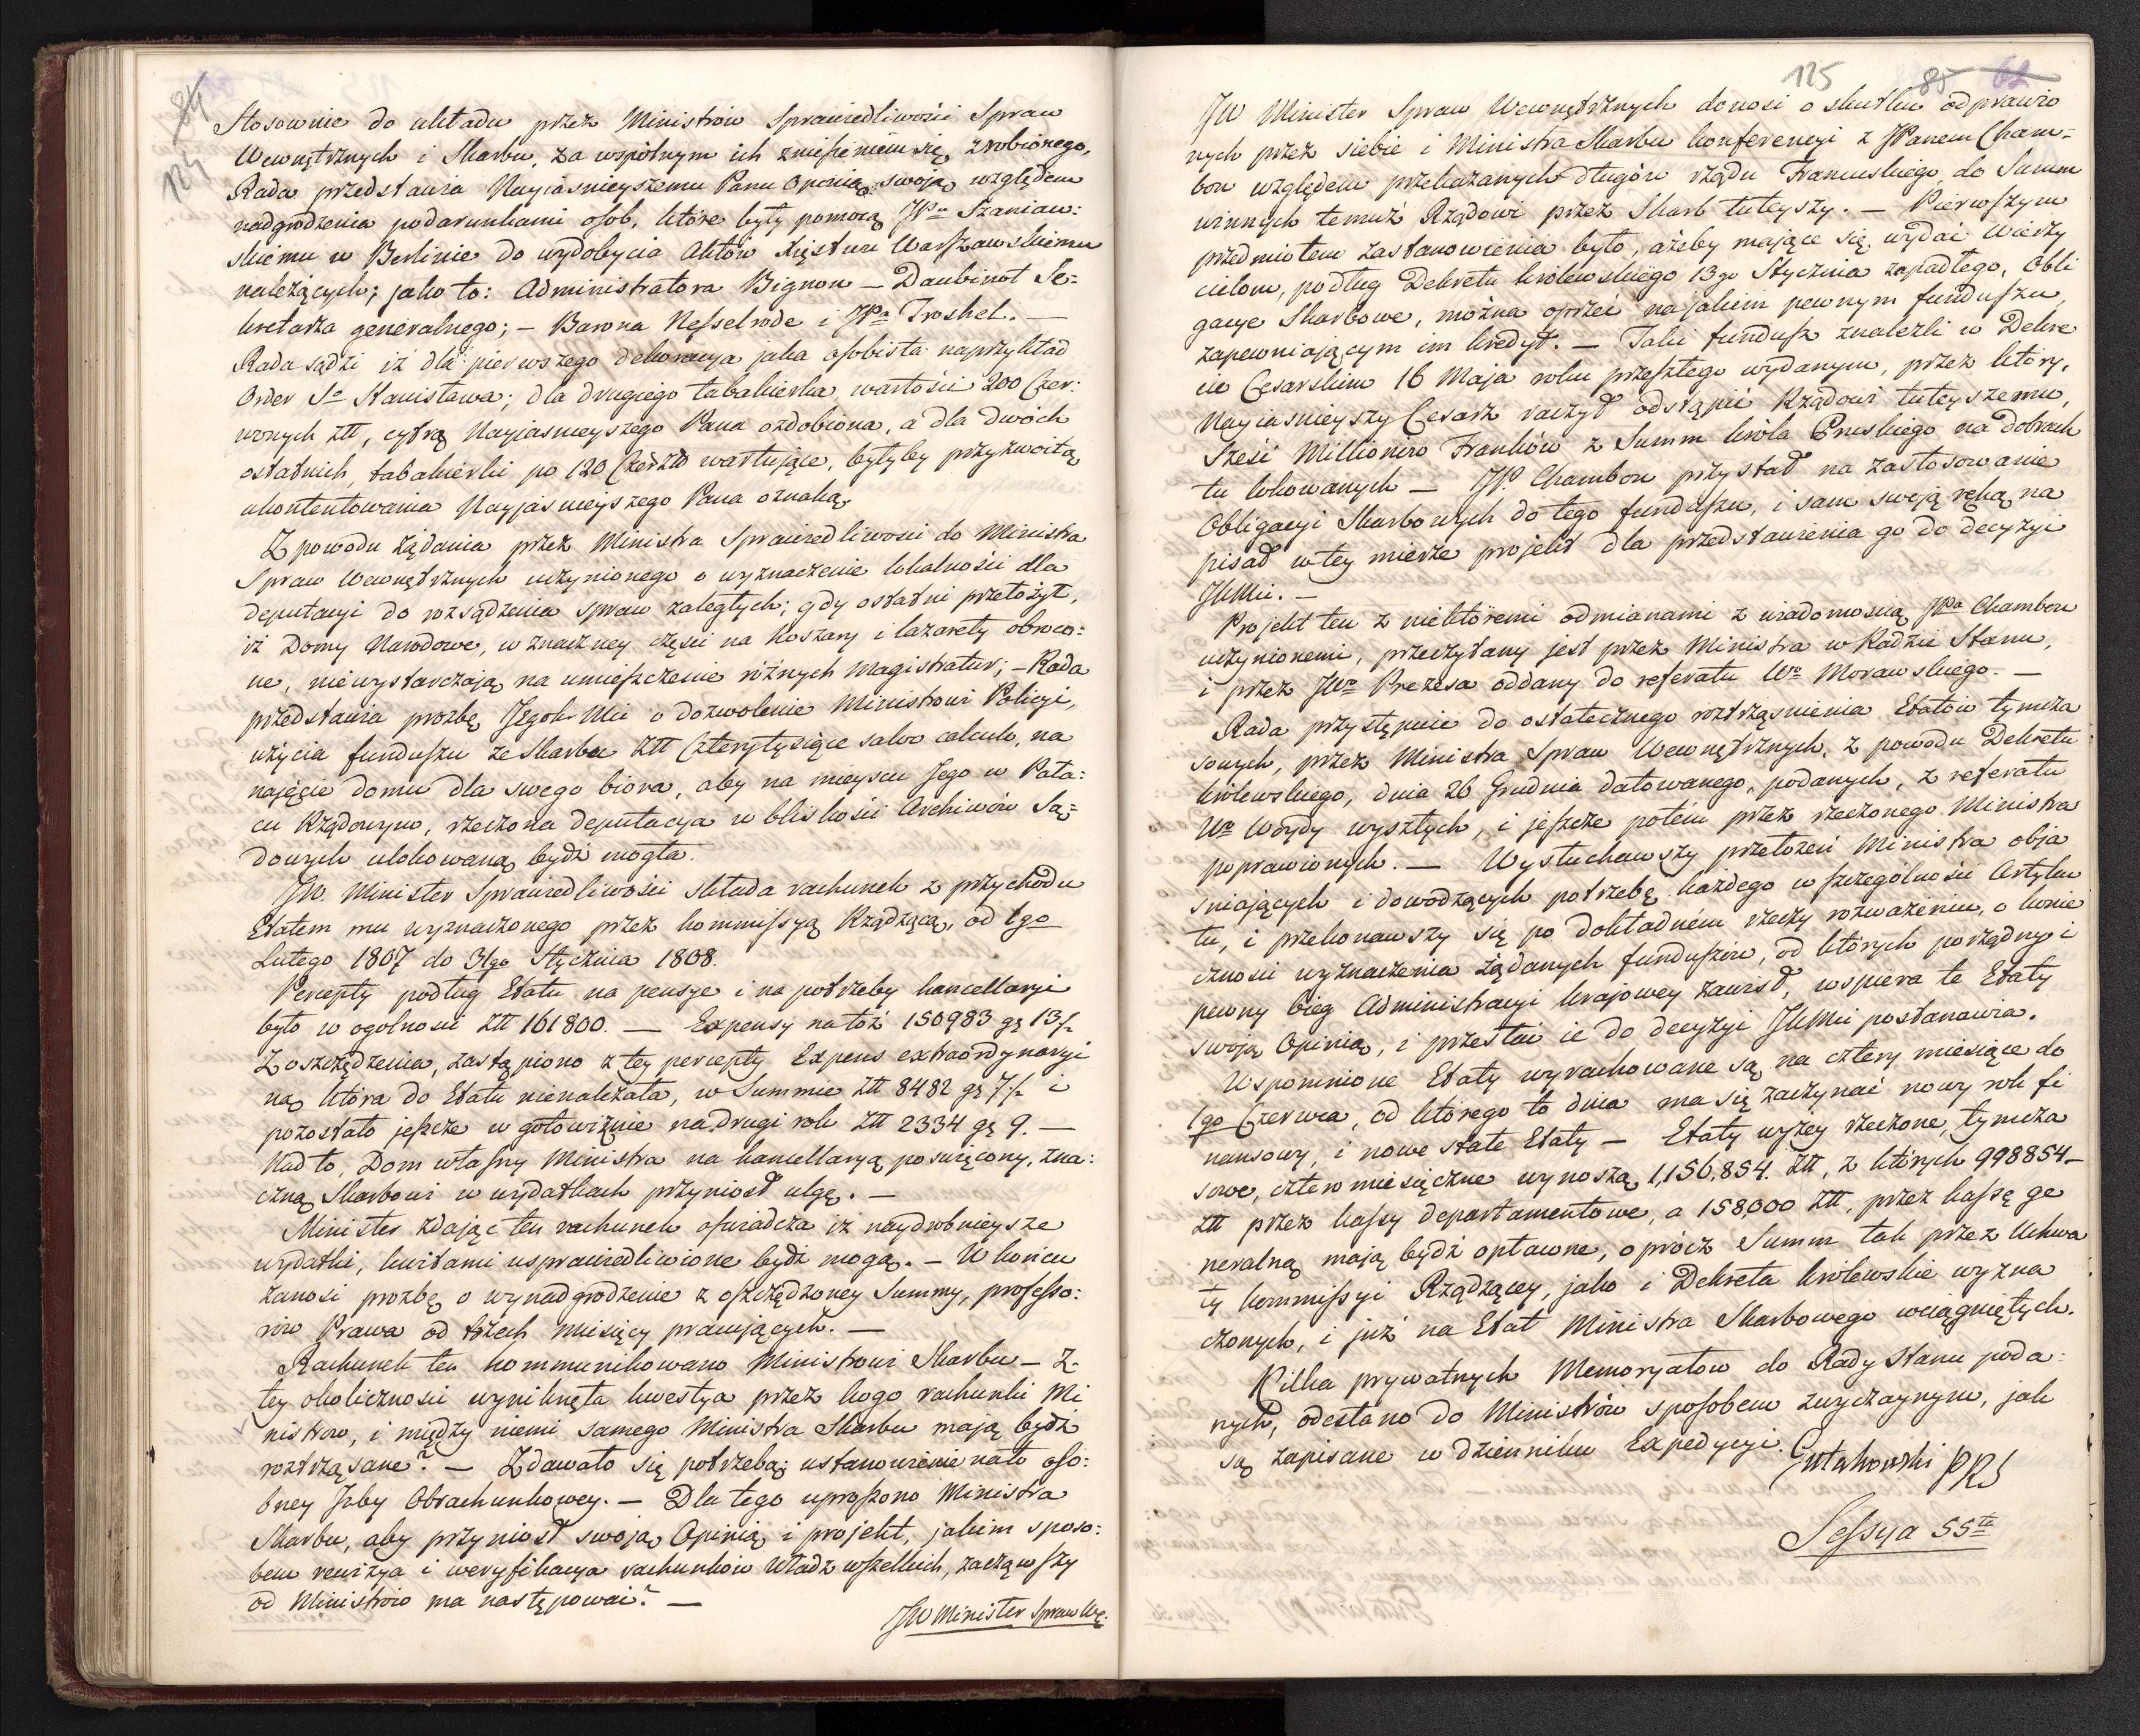 84
124
Stosownie do układu przez Ministrow Sprawiedliwości Spraw
Wewnętrznych i Skarbu, za wspólnym ich zniesieniem się zrobionego,
Rada przedstawia Nayiasnieyszemu Panu Opinią swoją względem
nadgrodzenia podarunkami osob, które były pomocą JPu Szaniaw:
skiemu w Berlinie do wydobycia Aktów Xięstwu Warszawskiemu
należących; jako to: Administratora Bignon – Daubinot Se=
kretarza generalnego; – Barona Nesselrode i JPa Troshel. —
Rada sądzi iż dla pierwszego dekoracya jaka osobista naprzykład
Order Sº Stanisława; dla drugiego tabakierka wartości 200 Czer:
wonych Złł, cyfrą Nayjasnieyszego Pana ozdobiona, a dla dwóch
ostatnich, tabakierki po 120 CzerZłł wartujące, byłyby przyzwoitą
ukontentowania Nayjasnieyszego Pana oznaką
Z powodu żądania przez Ministra Sprawiedliwosci do Ministra
Spraw Wewnętrznych uczynionego o wyznaczenie lokalności dla
deputacyi do rozsądzenia spraw zaległych; gdy ostatni przełożył,
iż Domy Narodowe, w znaczney części na Koszary i lazarety obroco=
ne, niewystarczają na umieszczenie różnych Magistratur; – Rada
przedstawia prozbę JegoKMci o dozwolenie Ministrowi Policyi,
użycia funduszu ze Skarbu Złł Czterytysiące salvo calculo, na
najęcie domu dla swego biora, aby na mieyscu Jego w Pała:
cu Rządowym, rzeczona deputacya w bliskości Archiwów Są=
dowych ulokowaną bydź mogła.
JW. Minister Sprawiedliwości składa rachunek z przychodu
Etatem mu wyznaczonego przez kommissyą Rządzącą, od 1go
Lutego 1807 do 31go Stycznia 1808.
Percepty podług Etatu na pensye i na potrzeby kancellaryi
było w ogolnosci Złł 161800. — Expensy na toż 150983 gr 13 f
Z oszczędzenia, zastąpiono z tey percepty Expens extraordynaryi
ną która do Etatu nienależała, w Summie Złł 8482 gr 7 f i
pozostało jeszcze w gotowiźnie na drugi rok Złł 2334 gr 9. —
Nad to, Dom własny Ministra na kancellaryą poswięcony, zna:
czną Skarbowi w wydatkach przyniosł ulgę. —
Minister zdając ten rachunek oswiadcza iż naydrobnieysze
wydatki, kwitami usprawiedliwione bydź mogą. – W końcu
zanosi prozbę o wynadgrodzenie z oszczędzoney Summy, professo:
rów Prawa od trzech miesięcy pracujących. —
Rachunek ten kommunikowano Ministrowi Skarbu – Z
tey okoliczności wyniknęła kwestya przez kogo rachunki Mi
nistrow, i między niemi samego Ministra Skarbu mają bydź
roztrząsane? – Zdawało się potrzebą; ustanowienie nato oso:
bney Izby Obrachunkowey. – Dla tego uproszono Ministra
Skarbu, aby przyniosł swoją Opinią i projekt, jakim sposo:
bem rewizya i weryfikacya rachunków Władz wszelkich, zacząwszy
od Ministrow ma następować? —
JW Minister Spraw We:
125
85
62
JW Minister Spraw Wewnętrznych donosi o skutku odprawio
nych przez siebie i Ministra Skarbu konferencyi z JPanem Cham=
bon względem przekazanych długów rządu Francuskiego do Summ
winnych temuż Rządowi przez Skarb tuteyszy. — Pierwszym
przedmiotem zastanowienia było, ażeby mające się wydać wierzy
cielom, podług Dekretu krolewskiego 13go Stycznia zapadłego, Obli
gacye Skarbowe, można oprzeć na jakim pewnym funduszu
zapewniającym im kredyt. – Taki fundusz znaleźli w Dekre
cie Cesarskim 16 Maja roku przeszłego wydanym, przez który,
Nayiasnieyszy Cesarz raczył odstąpić Rządowi tuteyszemu,
Sześć Millionow Franków z Summ króla Pruskiego na dobrach
tu lokowanych — JP. Chambon przystał na zastosowanie
Obligacyi Skarbowych do tego funduszu, i sam swoją ręką na
pisał w tey mierze projekt dla przedstawienia go do decyzyi
JKMci. —
Projekt ten z niektóremi odmianami z wiadomoscią JPa Chambon
uczynionemi, przeczytany jest przez Ministra w Radzie Stanu,
i przez JWo Prezesa oddany do referatu Wo Morawskiego. —
Rada przystępuie do ostatecznego roztrząsnienia Etatów tymcza
sowych, przez Ministra Spraw Wewnętrznych, z powodu Dekretu
krolewskiego, dnia 26 Grudnia datowanego, podanych, z referatu
Wo Woydy wyszłych, i jeszcze potém przez rzeczonego Ministra
poprawionych. — Wysłuchawszy przełożeń Ministra obja
śniających i dowodzących potrzebę każdego w szczególnosci Artyku
łu, i przekonawszy się po dokładném rzeczy rozważeniu, o konie
cznosci wyznaczenia żądanych funduszow, od których porządny i
pewny bieg Administracyi krajowey zawisł, wspiera te Etaty
swoją Opinią, i przesłać ie do decyzyi JKMci postanawia.
Wspomnione Etaty wyrachowane są na cztery miesiące do
1go Czerwca, od którego to dnia ma się zaczynać nowy rok fi
nansowy, i nowe stałe Etaty — Etaty wyzey rzeczone, tymcza
sowe, cztero miesięczne wynoszą 1,156,854. Złł, z których 998854–
Złł przez kassy departamentowe, a 158,000 Złł, przez kassę ge
neralną mają bydź opłacone, oprócz Summ tak przez Uchwa
ły kommissyi Rządzącey, jako i Dekreta krolewskie wyzna
czonych, i już na Etat Ministra Skarbowego wciągniętych.
Kilka prywatnych Memoryałow do Rady Stanu poda=
nych, odesłano do Ministrów sposobem zwyczaynym, jak
są zapisane w dzienniku Expedycyi.
Gutakowski PRS
Sessya 55ta